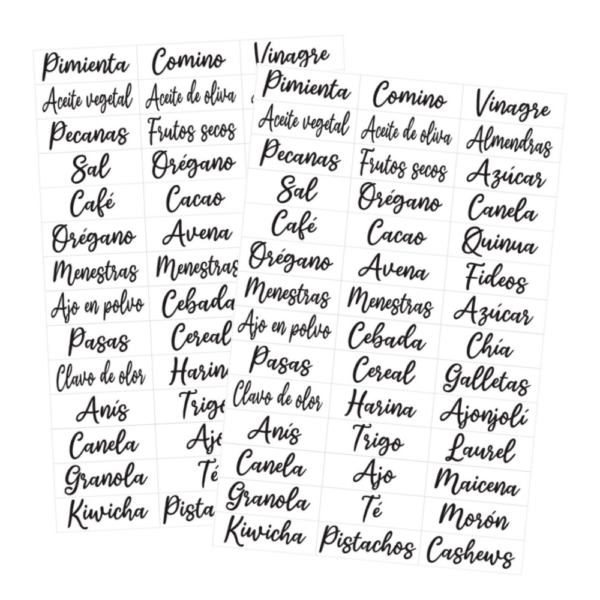 Pimienta Comino Vinagre
Aceite vegetal Aceite de oliva
Pecanas Frutos secos
Sal Orégano
Café Cacao
Orégano Avena
Menestras Menestras
Ajo en polvo Cebada
Pasas Cereal
Clavo de olor
Anís
Canela Ajo
Granola Té
Kiwicha
Pimienta Comino Vinagre
Aceite vegetal Aceite de oliva Almendras
Pecanas Frutos secos Azúcar
Sal Orégano Canela
Café Cacao Quinua
Orégano Avena Fideos
Menestras Menestras Azúcar
Ajo en polvo Cebada Chía
Pasas Cereal Galletas
Clavo de olor Harina Ajonjolí
Anís Trigo Laurel
Canela Ajo Maicena
Granola Té Morón
Kiwicha Pistachos Cashews